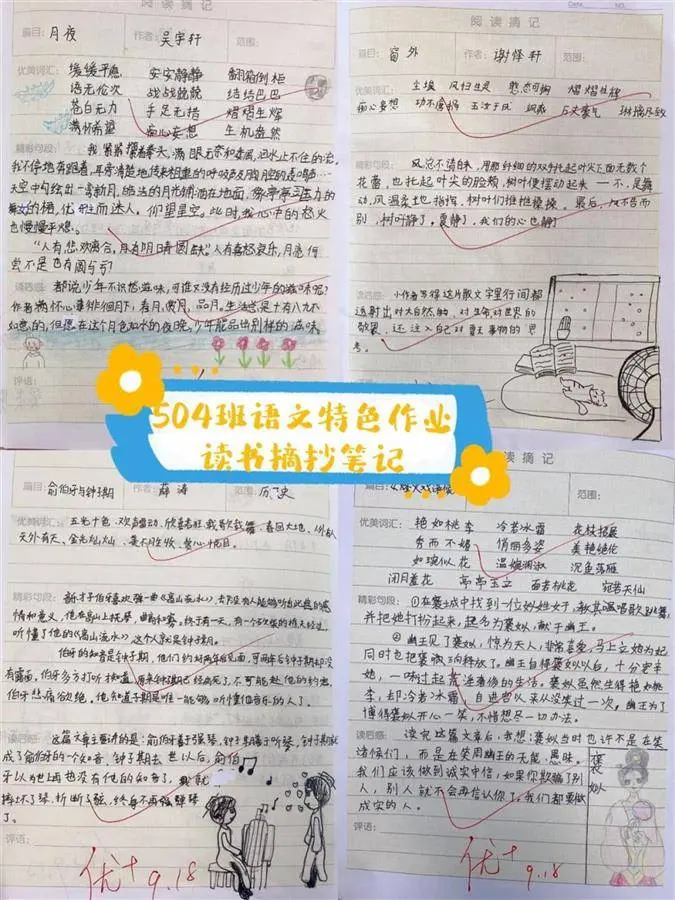 阅读摘记
篇目：月夜 作者：吴宇轩 范围：
优美词汇： 缓缓平息 安安静静 翻箱倒柜
语无伦次 战战兢兢 结结巴巴
苍白无力 手足无措 熠熠生辉
满怀希望 痴心妄想 生机盎然
精彩句段： 我紧紧攥着拳头，满眼无奈和委屈，泪水止不住的流。
天空中勾绘出一弯新月，皎洁的月光铺洒在地面，
而迷人。仰望星空。此时我心中的怒火
也慢慢平息。
“人有悲欢离合，月有阴晴圆缺。”人有喜怒哀乐，月亮何
尝不是也有圆与亏？
读后感： 都说少年不识愁滋味，可谁又没有经历过少年的滋味呢？
作者满怀心事徘徊月下，看月，赏月，品月。生活总是十有八九不
如意的，但愿在这个月色如水的夜晚，少年能品出别样的滋味。
评语：
阅读摘记
Date. NO.
篇目：窗外 作者：谢怿轩 范围：
优美词汇： 尘埃 风扫生灵 憨态可掬 熠熠生辉
痴心妄想 飒爽 淋漓尽致
精彩句段： 风忽不请自来，用那纤细的双手托起叶尖下面无数个
花蕾，也托起叶尖的脸颊，树叶便摆动起来——不，是舞
动，风温柔地指挥，树叶们推推搡搡。最后，风不告而
别，树叶静了。夏静了，我们的心也静了
读后感： 小作者写得这片散文字里行间都
透射出对大自然的，对生命对世界的
敬畏，还注入自己对夏天事物的思
考。
504班语文特色作业
读书摘抄笔记
篇目：俞伯牙与钟子期 作者：薛涛 范围：历史
优美词汇： 五光十色、欢声雷动、欣喜若狂、载歌载舞、春回大地、
天外有天、金光灿灿、美不胜收、赏心悦目。
精彩句段：
听懂了他的《高山流水》，这个人就是钟子期。
伯牙的知音是钟子期，他们约好两年后见面，可两年后钟子期却没
有露面，伯牙多方打听才知道，原来钟子期已经病死了，不可能赴他的约定，
伯牙悲痛欲绝。他知道子期是唯一能够听懂他音乐的人了。
读后感： 这篇文章主要讲的是：俞伯牙善于弹琴，钟子期善于听琴，钟子期就
成了俞伯牙的一个知音，钟子期去世以后，俞伯
牙认为世上再也没有他的知音了，我就
摔坏了琴，折断了弦，终身不再弹琴
了。
评语：
优+ 9.18
阅读摘记
范围：
优美词汇： 艳如桃李 冷若冰霜 花枝招展
秀而不媚 俏丽多姿 美艳绝伦
如琬似花 温婉娴淑 沉鱼落雁
闭月羞花 亭亭玉立 面若桃花 宛若天仙
精彩句段： ①在褒城中找到一位姒姓女子，教其唱歌跳舞，
并把她打扮起来，起名为褒姒，献于幽王。
②幽王见了褒姒，惊为天人，非常喜爱，马上立她为妃
同时也把褒姒珦释放了。幽王自得褒姒以后，十分宠幸
她，一味过起荒淫奢侈的生活。褒姒虽然生得艳如桃
李，却冷若冰霜，自进宫以来从没笑过一次，幽王为了
博得褒姒开心一笑，不惜想尽一切办法。
读后感： 读完这篇文章后，我想：褒姒当时也许不是在笑
诸侯们，而是在笑周幽王的无能、愚昧。
我们应该做到诚实守信，如果你欺骗了别
人，别人就不会再信认你了。我们都要做
成实的人。
褒姒
评语：
优+ 9.18